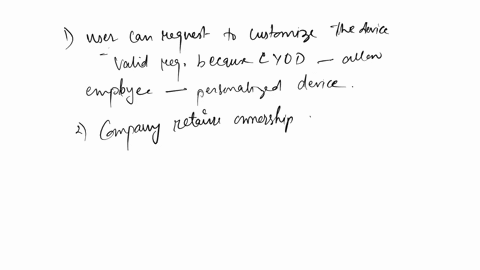 1) User can request to customize the device
- Valid req. because CYOD — allow
employee — personalized device.
2) Company retains ownership .